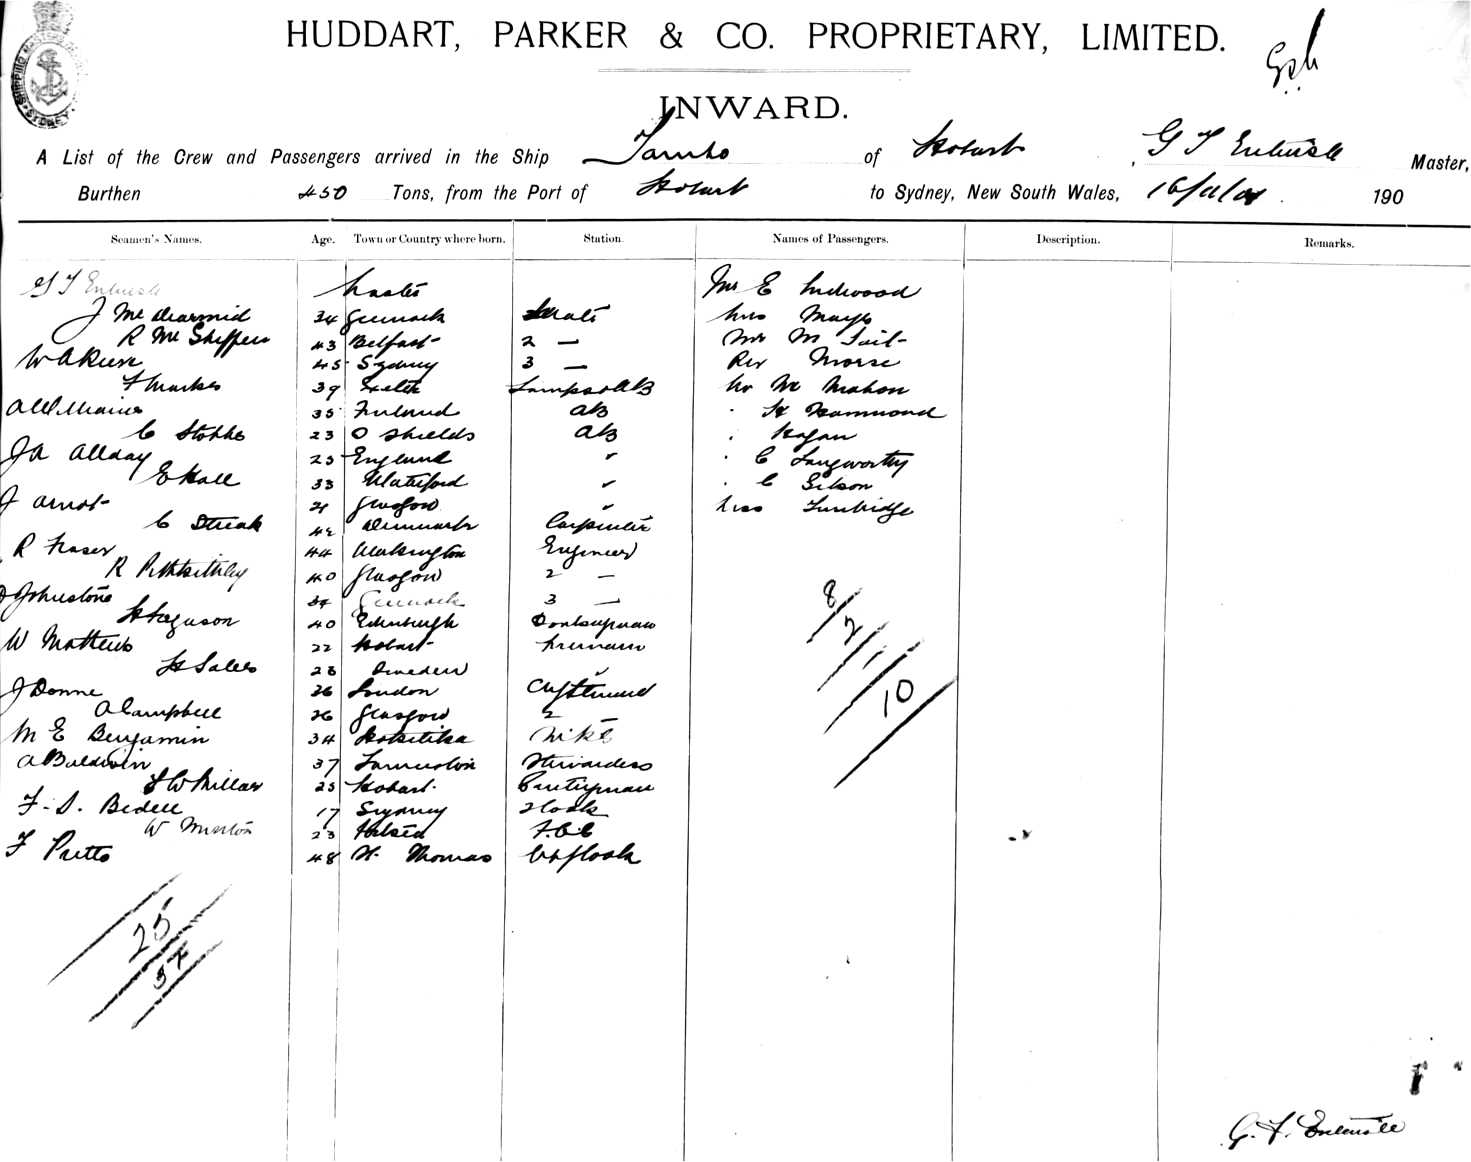 SHIPPING MASTER'S SYDNEY
HUDDART, PARKER & CO. PROPRIETARY, LIMITED.
INWARD.
A List of the Crew and Passengers arrived in the Ship Tambo of Hobart, G T Entwistle Master,
Burthen 450 Tons, from the Port of Hobart to Sydney, New South Wales, 16/11/01 190
Seamen's Names. Age. Town or Country where born. Station. Names of Passengers. Description. Remarks.
G T Entwistle Master Mr E Inchwood
J Mc Dearmid 34 Greenock Mate Miss Mays
R Mc Skeffern 43 Belfast 2 — Mr M Tait
W A 45 Sydney 3 — Rev Morse
F Markes 39 Exeter Lamps & AB Mr Mc Mahon
35 Finland AB " H Hammond
C Stokke 23 S Shields AB " Hogan
J A Allday 25 England " " C Langworthy
E Hall 33 Waterford " " C Gibson
J Arnot 21 Glasgow " Miss Tunbridge
C Streak 42 Denmark Carpenter
R Fraser 44 Workington Engineer
R Pitkeithly 40 Glasgow 2 —
Johnstone 34 Greenock 3 —
H Ferguson 40 Edinburgh Donkeyman
W Mathews 22 Hobart Fireman
H Sales 23 Sweden "
J Donne 26 London Chf Steward
A Campbell 26 Glasgow 2 —
M E Benjamin 34 Hokitika
A Baldwin 37 Launceston Stewardess
F W Millar 25 Hobart Pantryman
F. S. Bedell 17 Sydney 2 Cook
W 23
F Pretto 48 St. Thomas Chf Cook
8/2/1/10
25
G. T. Entwistle